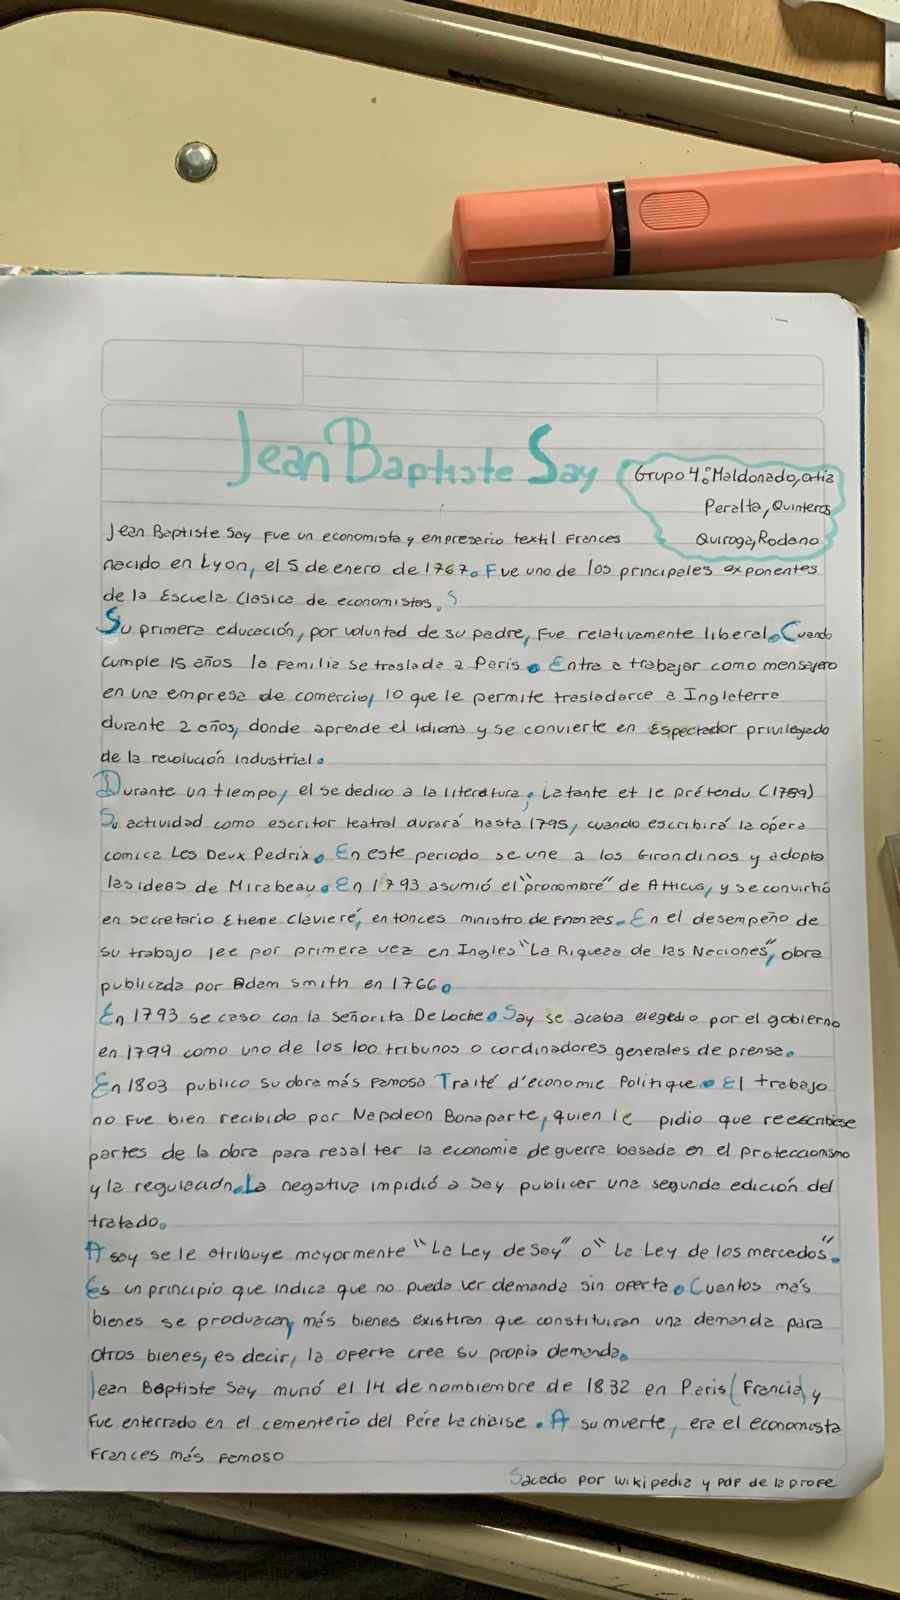 Jean Baptiste Say
Grupo 4: Maldonado, Ortiz
Peralta, Quinteros
Quiroga, Rodano
Jean Baptiste Say Fue un economista y empresario textil Frances
nacido en Lyon, el 5 de enero de 1767. Fue uno de los principales exponentes
de la Escuela Clasica de economistas. S
Su primera educación, por voluntad de su padre, fue relativamente liberal. Cuando
cumple 15 años la familia se traslada a Paris. Entra a trabajar como mensajero
en una empresa de comercio, lo que le permite trasladarce a Inglaterra
durante 2 años, donde aprende el idioma y se convierte en Espectador privilegiado
de la revolución industrial.
Durante un tiempo, el se dedico a la literatura; Latante et le Prétendu (1789)
Su actividad como escritor teatral durará hasta 1795, cuando escribirá la opera
comica Les Deux Pedrix. En este periodo se une a los Girondinos y adopta
las ideas de Mirabeau. En 1793 asumió el "pronombre" de Atticus, y se convirtió
en secretario Etiene Clavieré, entonces ministro de Finanzas. En el desempeño de
su trabajo lee por primera vez en Ingles "La Riqueza de las Naciones", obra
publicada por Adam Smith en 1766.
En 1793 se caso con la Señorita Deloche. Say se acaba elegedio por el gobierno
en 1799 como uno de los 100 tribunos o cordinadores generales de prensa.
En 1803 publico su obra más famosa Traité d'economie Politique. El trabajo
no fue bien recibido por Napoleon Bonaparte, quien le pidio que reescribiese
partes de la obra para resaltar la economia de guerra basada en el proteccionismo
y la regulación. La negativa impidió a Say publicar una segunda edición del
tratado.
A say se le atribuye mayormente "La Ley de Say" o "La Ley de los mercados".
Es un principio que indica que no puede ver demanda sin oferta. Cuantos más
bienes se produzcan, más bienes existiran que constituiran una demanda para
otros bienes, es decir, la oferta cree su propia demanda.
Jean Baptiste Say murió el 14 de nombiembre de 1832 en Paris (Francia) y
Fue enterrado en el cementerio del Pére Lachaise. A su muerte, era el economista
Frances más Famoso
Sacado por wikipedia y PDF de la profe